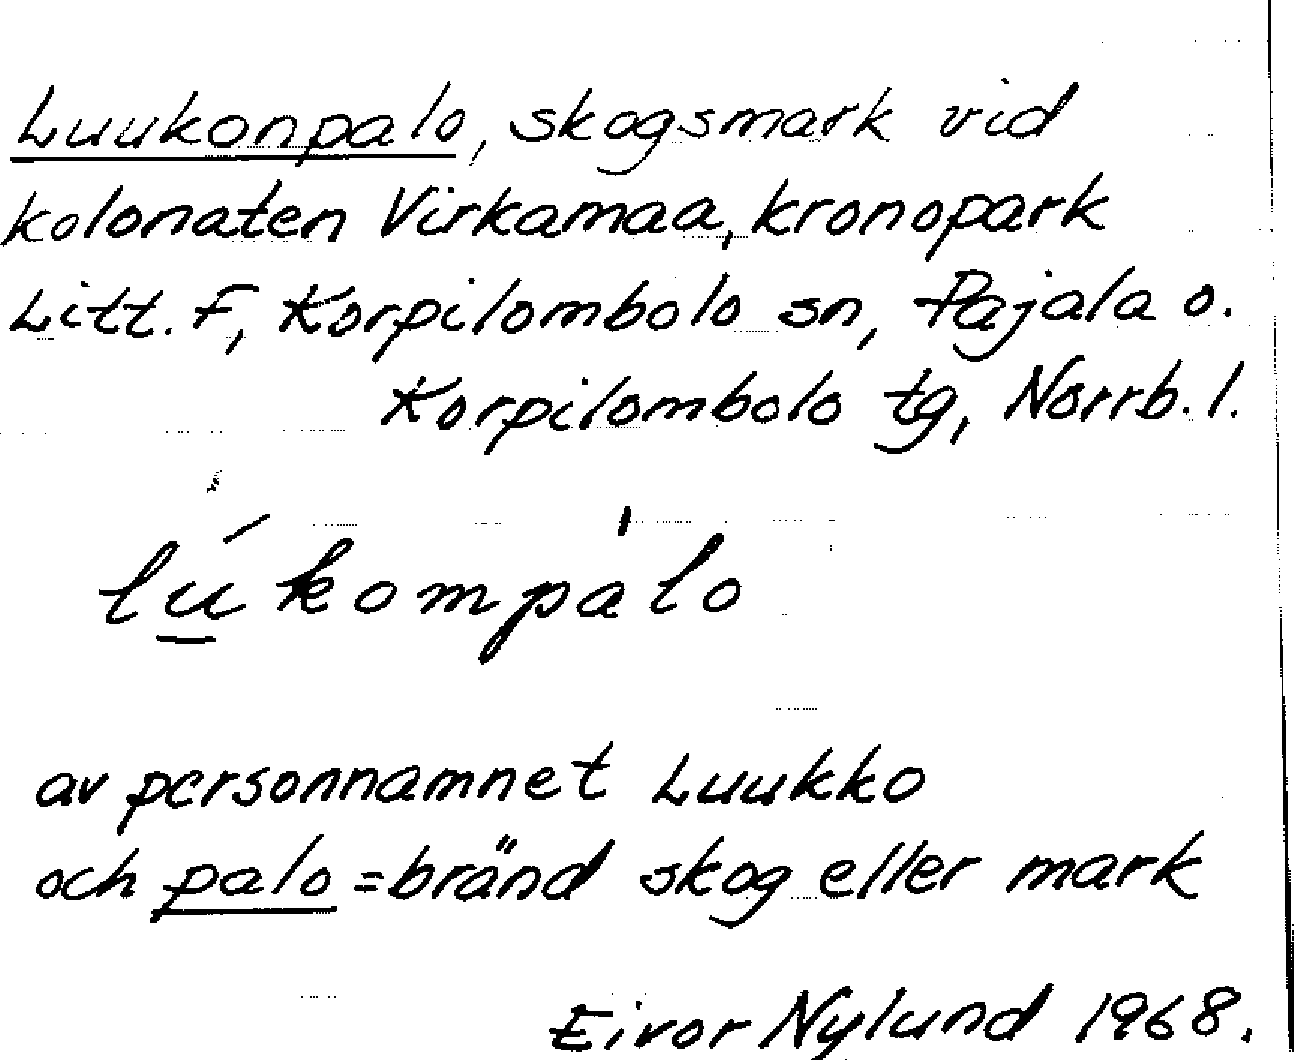 Luukonpalo, skogsmark vid
kolonaten Virkamaa, kronopark
Litt. F, Korpilombolo sn, Pajala o.
Korpilombolo tg, Norrb. l.
lu̱´kompa'lo
av personnamnet Luukko
och palo = bränd skog eller mark
Eivor Nylund 1968.